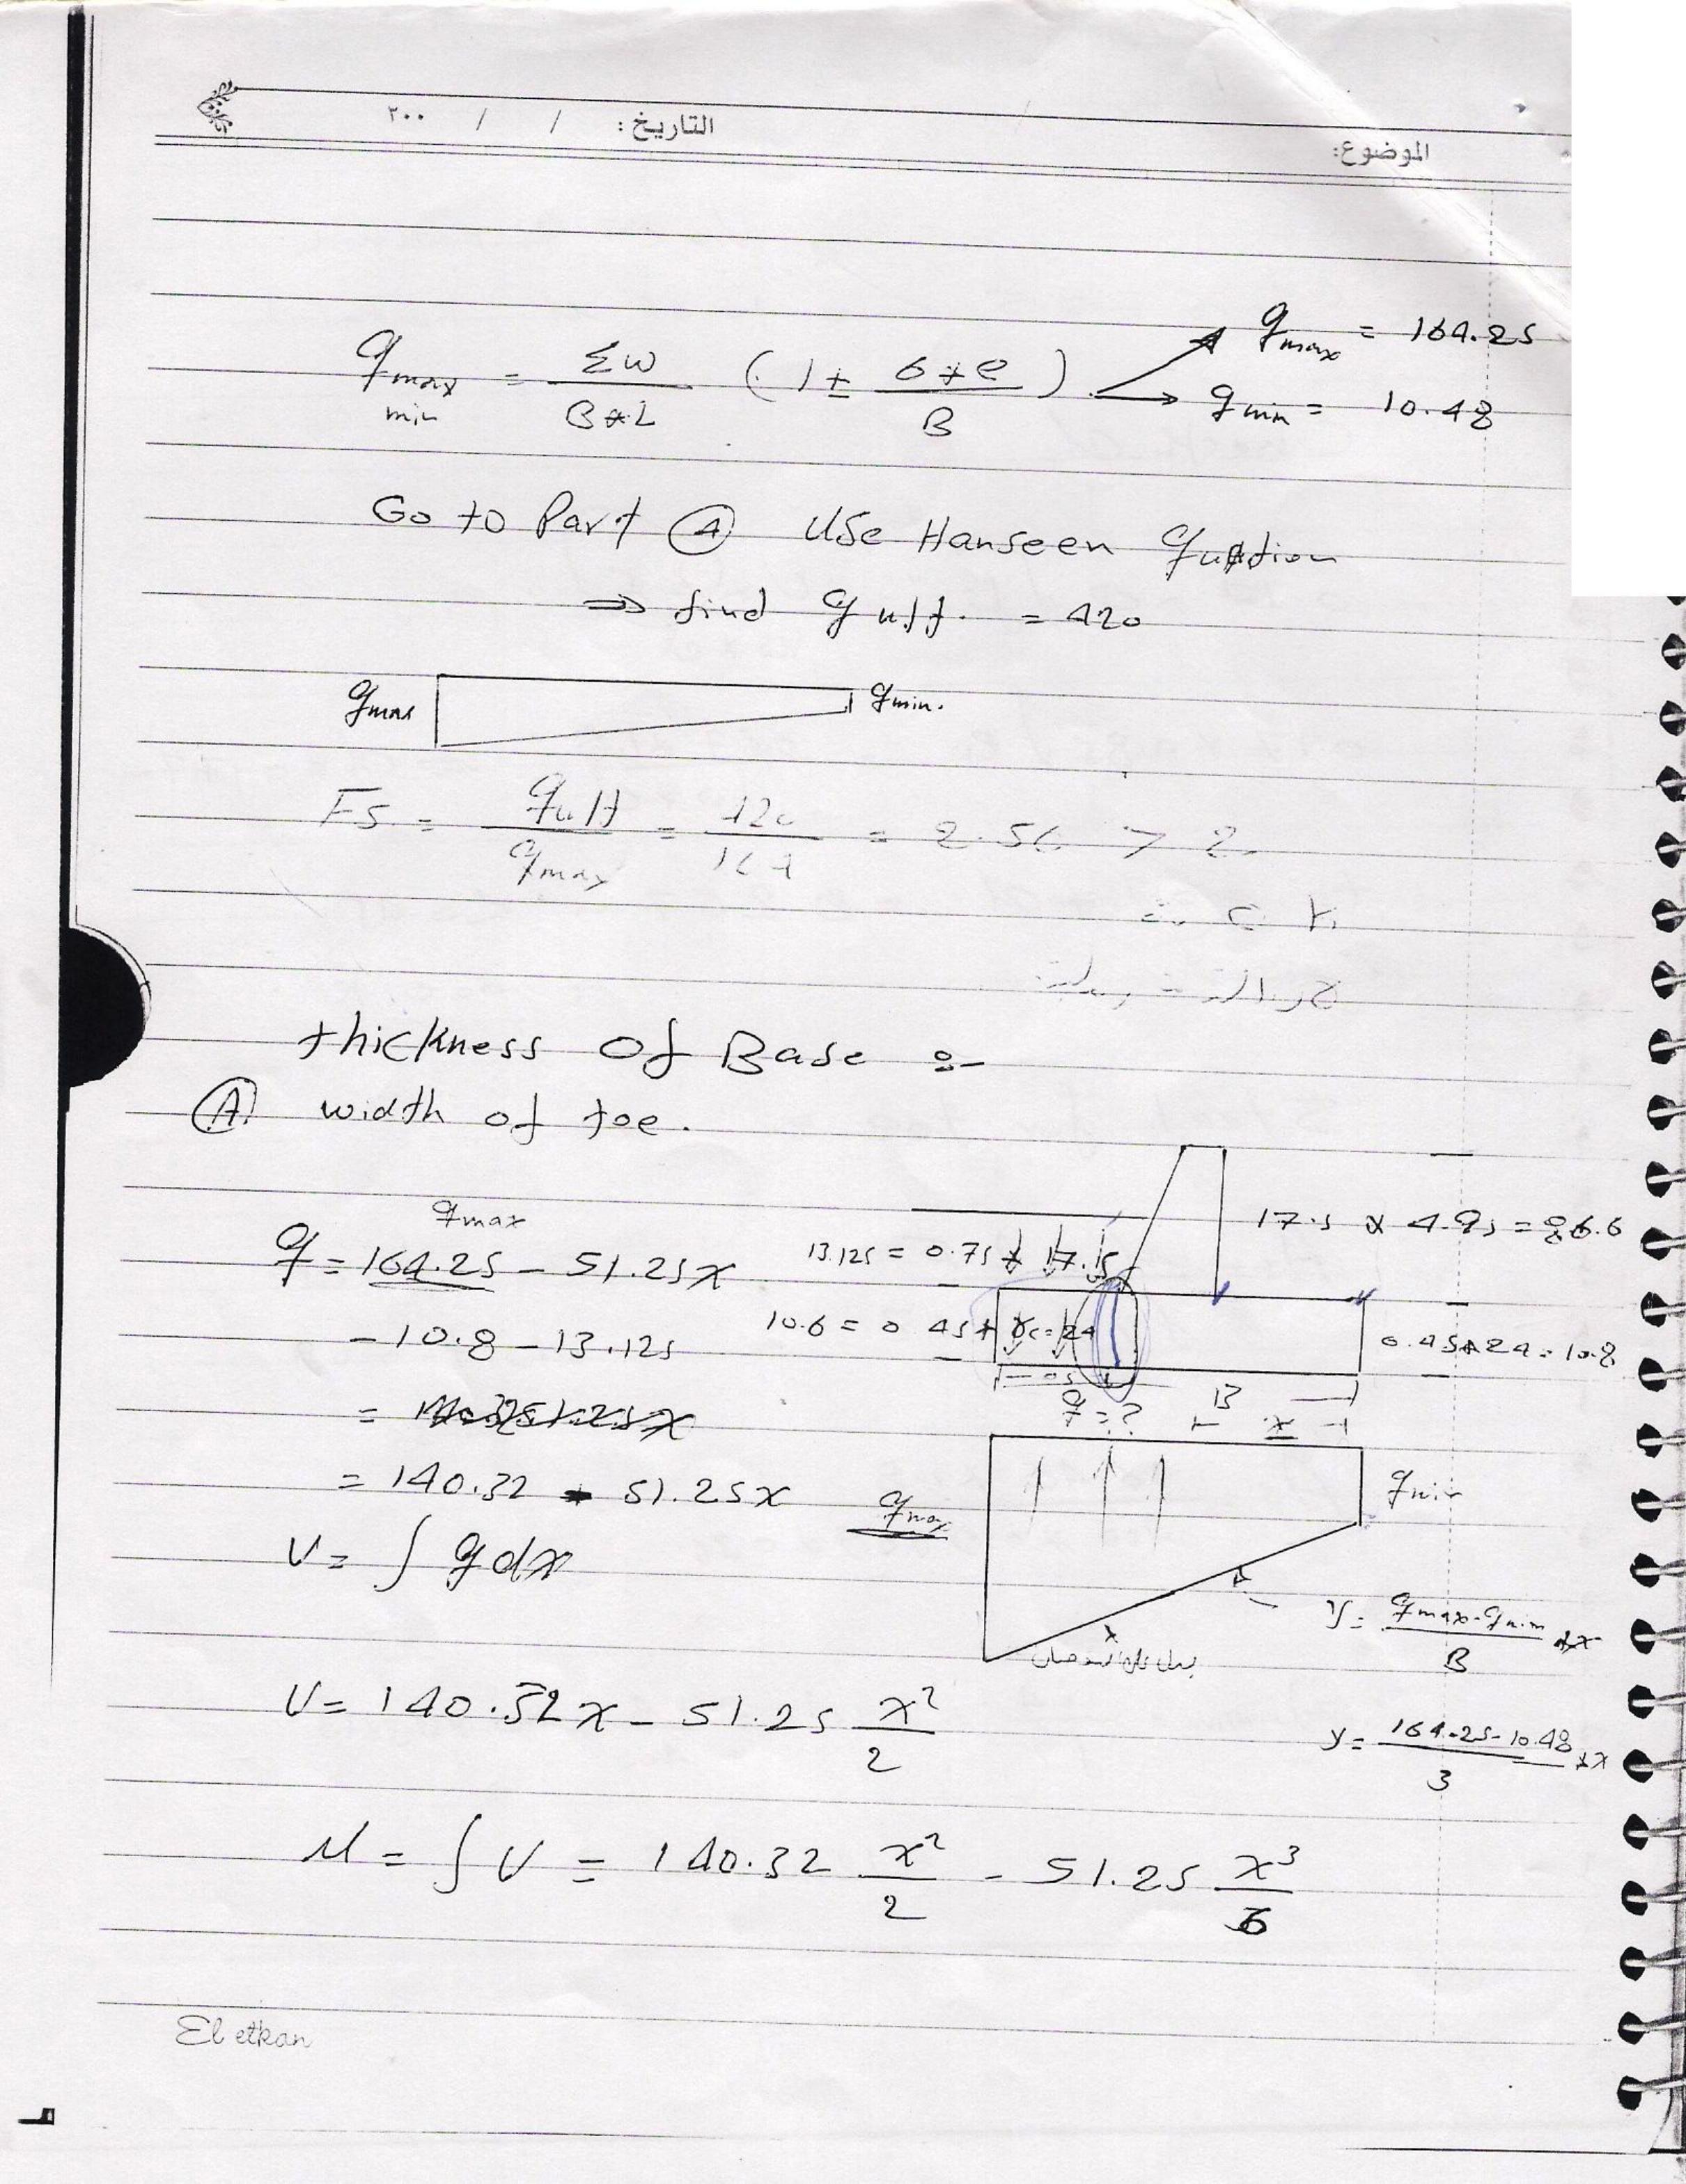 الموضوع: التاريخ: / / ٢٠٠
q max min = Σw / B*L (1 ± 6*e / B) → q max = 164.25
→ q min = 10.48
Go to Part (A) Use Hanseen
⇒ find q ult. = 420
q max q min.
Fs = q ult / q max = 420 / 164 = 2.56 > 2
∴ O.K
thickness of Base :-
(A) width of toe.
q max
q = 164.25 - 51.25x
- 10.8 - 13.125
= 140.32 - 51.25x
V = ∫ q dx
V = 140.32x - 51.25 x² / 2
M = ∫ V = 140.32 x² / 2 - 51.25 x³ / 6
17.5 * 4.95 = 86.6
13.125 = 0.75 * 17.5
10.6 = 0.45 * γc=24
0.45*24 = 10.8
B
q = ??
x
q max
q min
y = q max - q min / B *x
y = 164.25 - 10.48 / 3 *x
El etkan